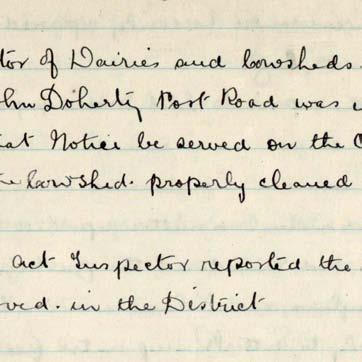 tor of Dairies and Cowsheds.
ohn Doherty Post Road was
at Notice be served on the
Cowshed. properly cleaned
act Inspector reported the
ved. in the District